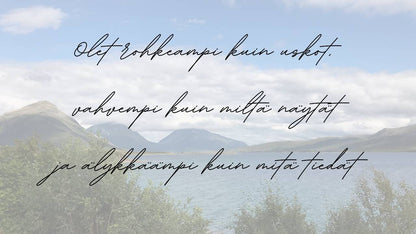 Olet rohkeampi kuin uskot,
vahvempi kuin miltä näytät
ja älykkäämpi kuin mitä tiedät